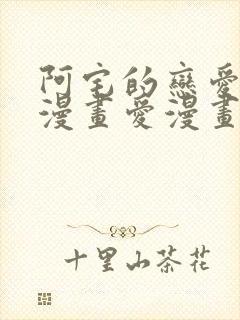 阿宅的戀愛
漫畫愛漫畫
十里山茶花